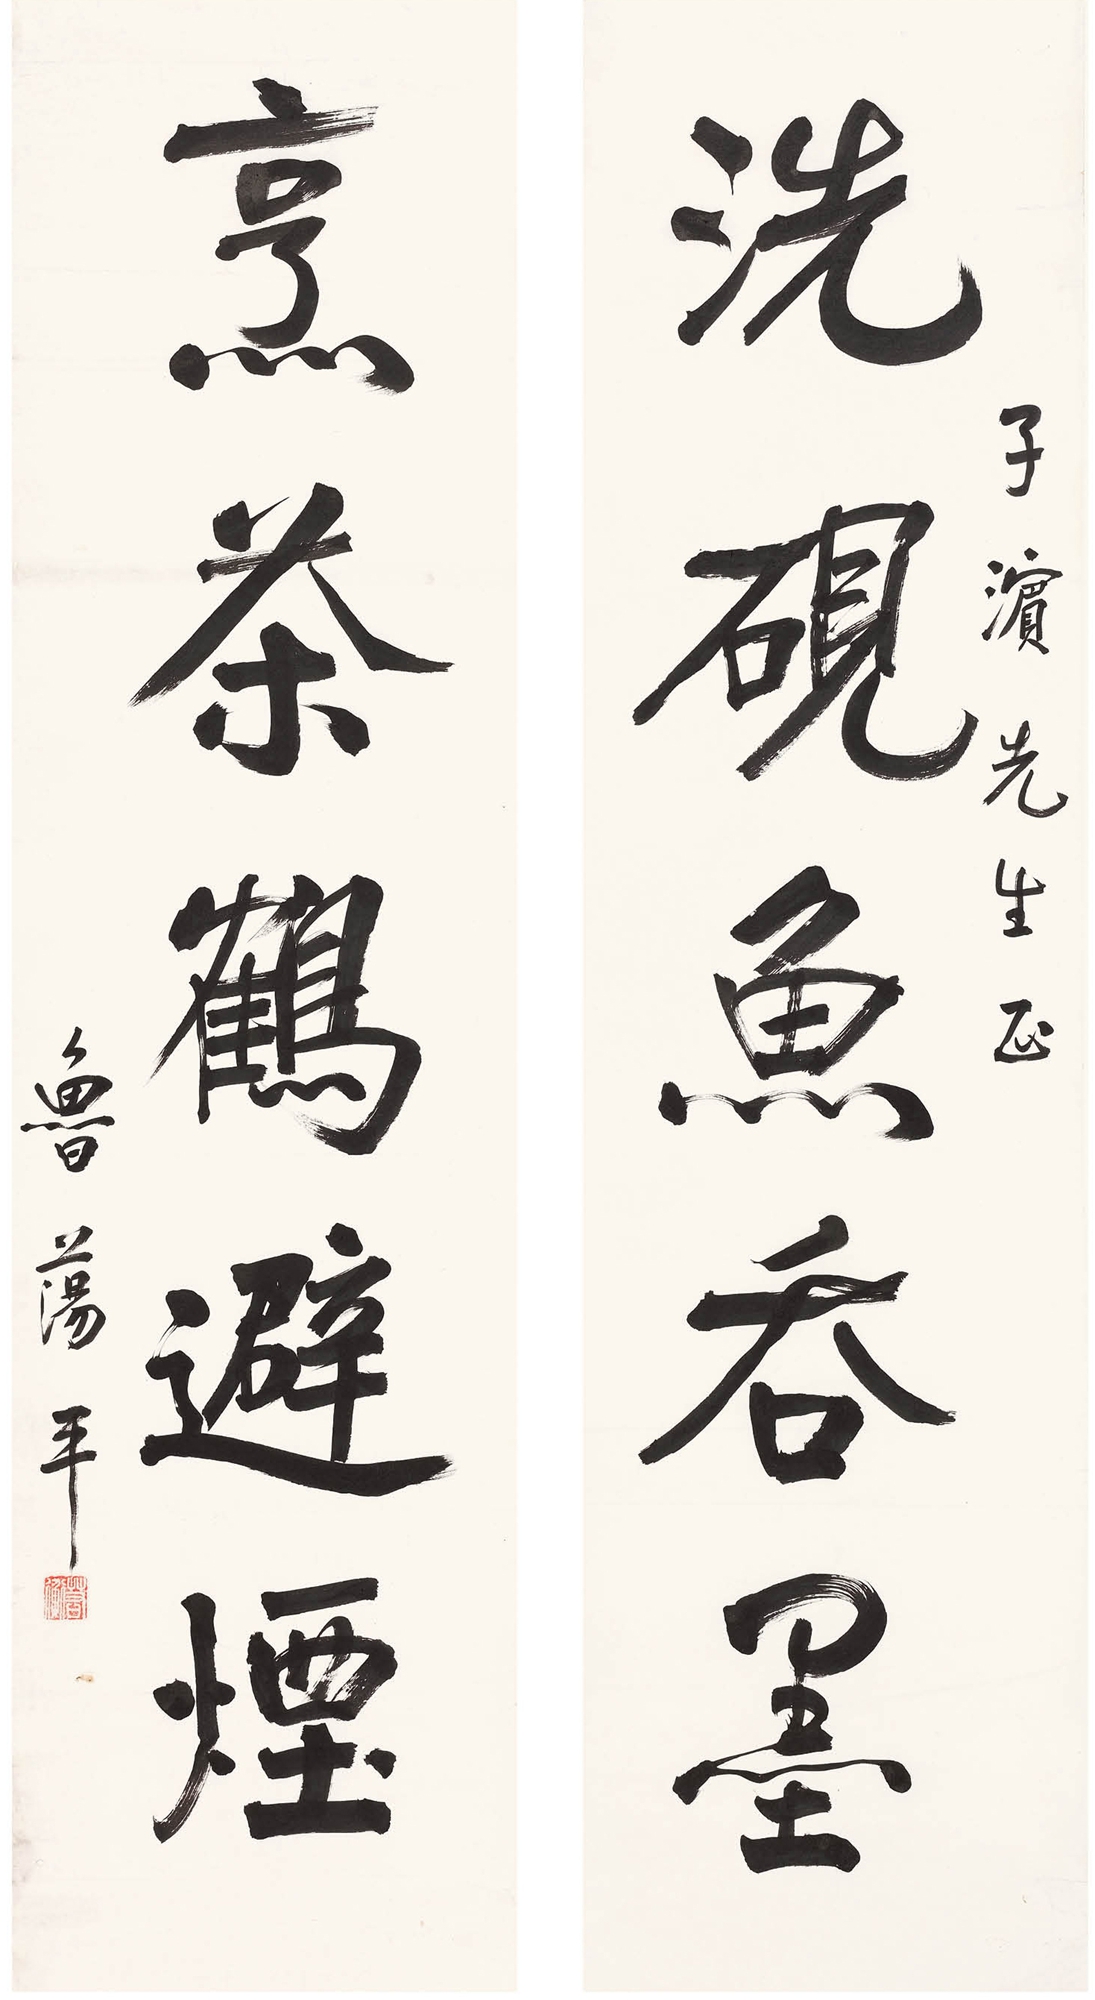 洗硯魚吞墨
子濱先生正
烹茶鶴避煙
魯蕩平